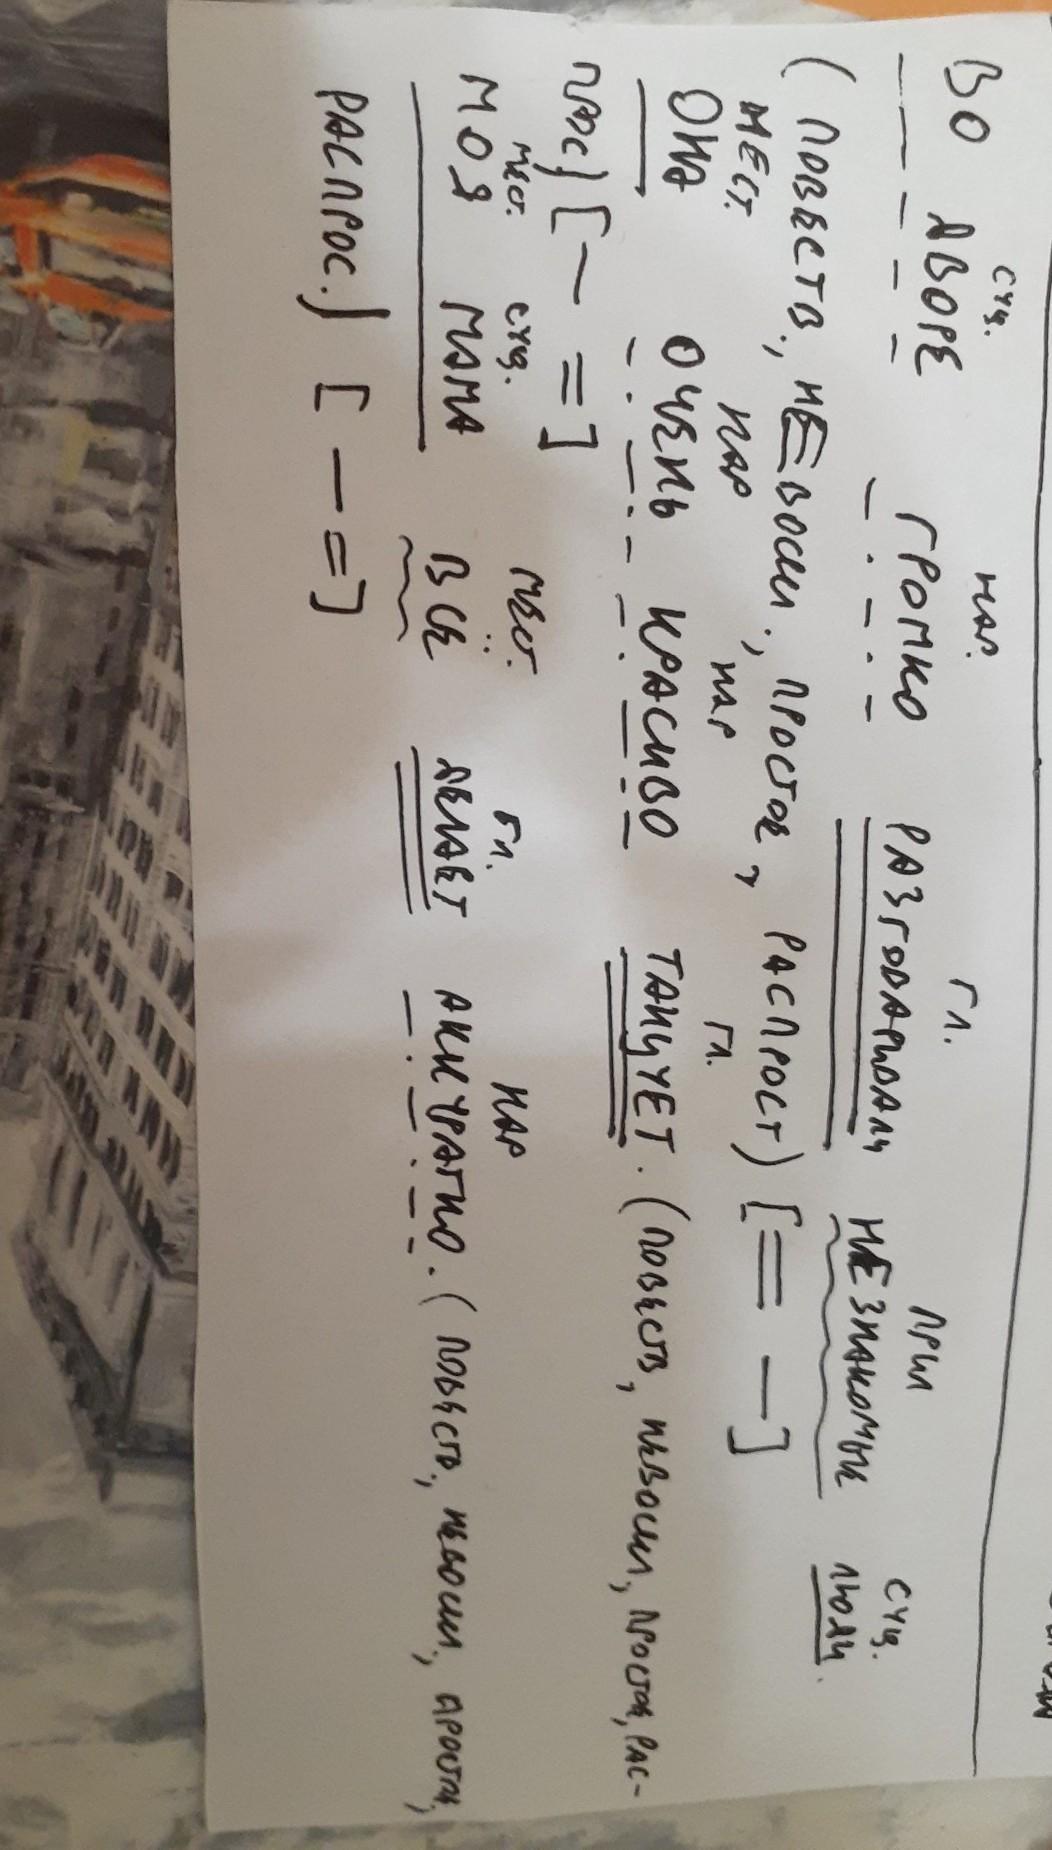 сущ. нар. гл. прил сущ.
ВО ДВОРЕ ГРОМКО РАЗГОВАРИВАЛИ НЕЗНАКОМЫЕ ЛЮДИ.
(ПОВЕСТВ., НЕВОСКЛ., ПРОСТОЕ, РАСПРОСТ) [= -]
МЕСТ. нар нар гл.
ОНА ОЧЕНЬ КРАСИВО ТАНЦУЕТ. (ПОВЕСТВ, НЕВОСКЛ, ПРОСТОЕ, РАС-
ПРОС) [- =]
мест. сущ. мест. гл. нар
МОЯ МАМА ВСЁ ДЕЛАЕТ АККУРАТНО. (ПОВЕСТВ., НЕВОСКЛ, ПРОСТОЕ,
РАСПРОС.) [- =]